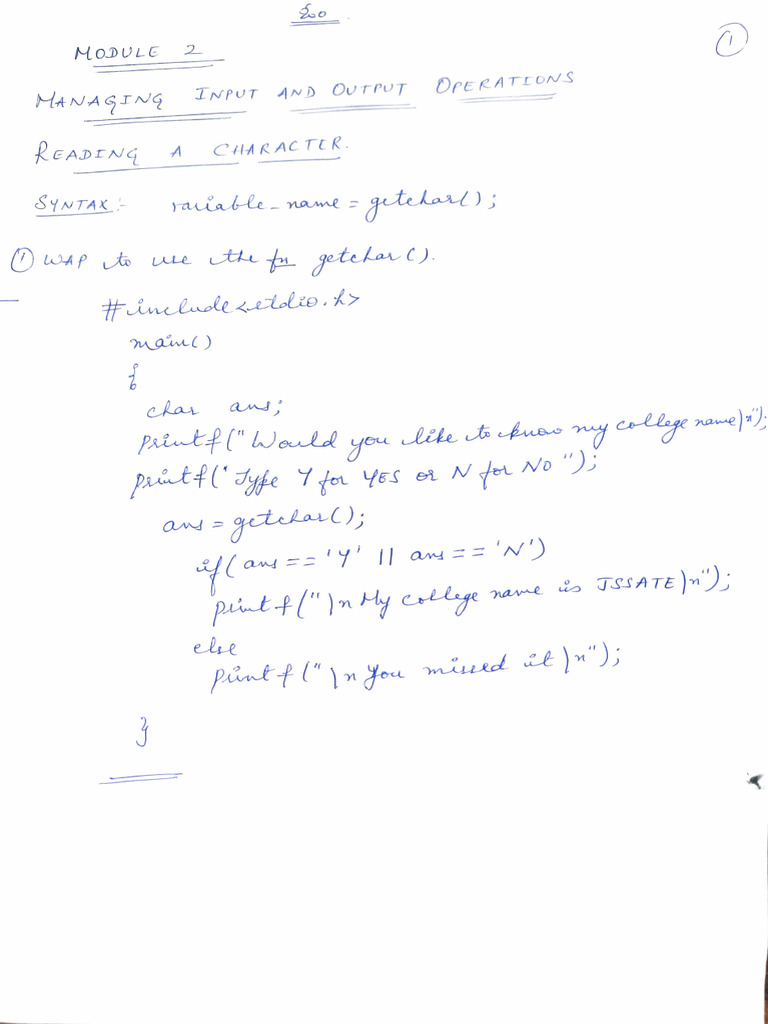 ಶ್ರೀ
1
MODULE 2
MANAGING INPUT AND OUTPUT OPERATIONS
READING A CHARACTER.
SYNTAX:- variable_name = getchar();
① WAP to use the fn getchar().
#include<stdio.h>
main()
{
char ans;
printf("Would you like to know my college name\n");
printf("Type Y for YES or N for NO");
ans = getchar();
if(ans == 'Y' || ans == 'N')
printf("\n My college name is JSSATE\n");
else
printf("\n You missed it \n");
}